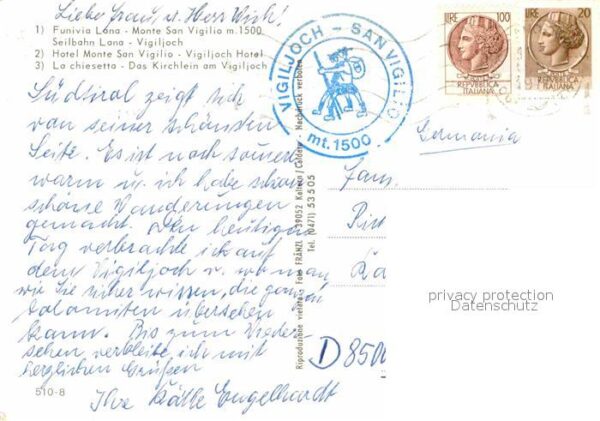 Liebe Frau, u. Herr Wirh!
1) Funivia Lana - Monte San Vigilio m. 1500
Seilbahn Lana - Vigiljoch
2) Hotel Monte San Vigilio - Vigiljoch Hotel
3) La chiesetta - Das Kirchlein am Vigiljoch
Südtirol zeigt sich
von seiner schönsten
Seite. Es ist noch
warm u. ich habe schon
schöne Wanderungen
gemacht. Den heutigen
Tag verbrachte ich auf
dem Vigiljoch v. wo man
wie Sie sicher wissen, die ganzen
Dolomiten übersehen
kann. Bis zum Wieder-
sehen verbleibe ich mit
herzlichen Grüßen
Ihre Käthe Engelhardt
510-8
VIGILJOCH - SAN VIGILIO
mt. 1500
LIRE 100
REPUBBLICA
ITALIANA
LIRE 20
REPUBBLICA
ITALIANA
Germania
Riproduzione vietata - Foto FRÄNZL - 39052 Kaltern / Caldaro - Nachdruck verboten
Tel. (0471) 53505
D 8500
privacy protection
Datenschutz